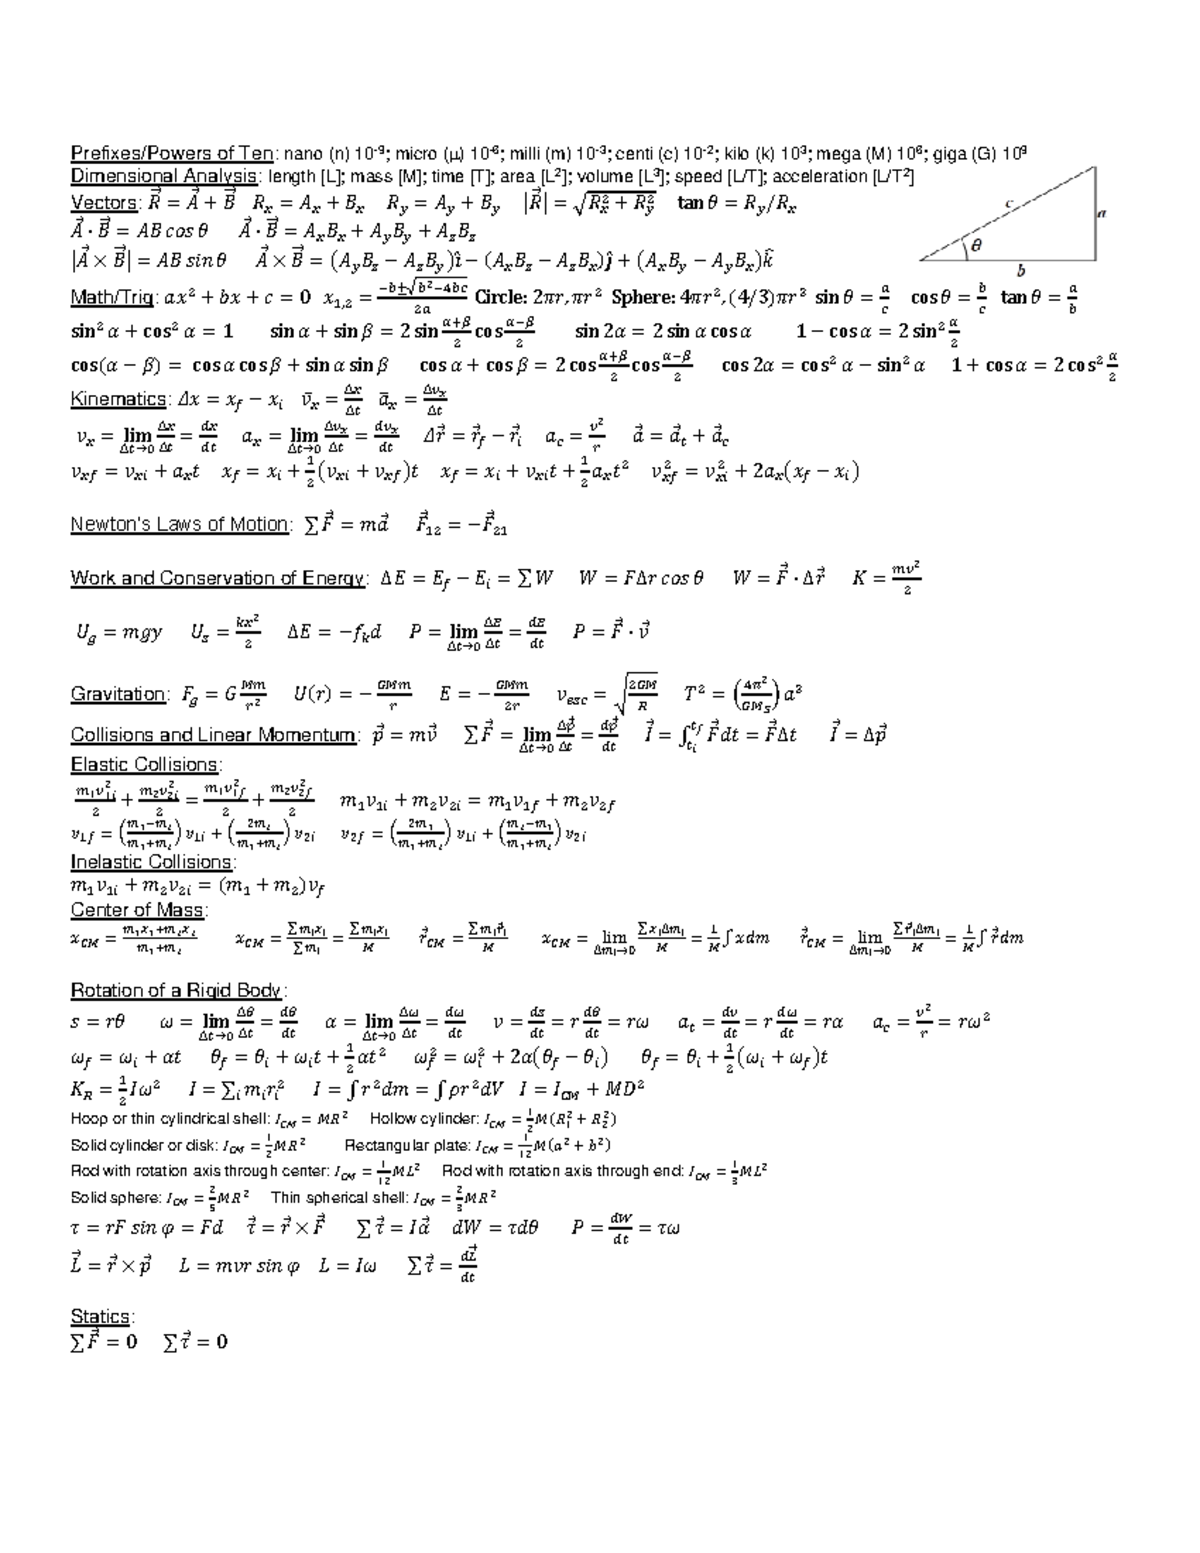 Prefixes/Powers of Ten: nano (n) 10⁻⁹; micro (µ) 10⁻⁶; milli (m) 10⁻³; centi (c) 10⁻²; kilo (k) 10³; mega (M) 10⁶; giga (G) 10⁹
Dimensional Analysis: length [L]; mass [M]; time [T]; area [L²]; volume [L³]; speed [L/T]; acceleration [L/T²]
Vectors: R⃗ = A⃗ + B⃗   Rₓ = Aₓ + Bₓ   R_y = A_y + B_y   |R⃗| = √(Rₓ² + R_y²)   tan θ = R_y/Rₓ
A⃗ · B⃗ = AB cos θ   A⃗ · B⃗ = AₓBₓ + A_yB_y + A_zB_z
|A⃗ × B⃗| = AB sin θ   A⃗ × B⃗ = (A_yB_z − A_zB_y)î − (AₓB_z − A_zBₓ)ĵ + (AₓB_y − A_yBₓ)k̂
c
a
θ
b
Math/Trig: ax² + bx + c = 0   x₁,₂ = (−b±√(b²−4bc))/2a   Circle: 2πr, πr²   Sphere: 4πr², (4/3)πr³   sin θ = a/c   cos θ = b/c   tan θ = a/b
sin² α + cos² α = 1   sin α + sin β = 2 sin (α+β)/2 cos (α−β)/2   sin 2α = 2 sin α cos α   1 − cos α = 2 sin² α/2
cos(α − β) = cos α cos β + sin α sin β   cos α + cos β = 2 cos (α+β)/2 cos (α−β)/2   cos 2α = cos² α − sin² α   1 + cos α = 2 cos² α/2
Kinematics: Δx = x_f − x_i   v̄ₓ = Δx/Δt   āₓ = Δvₓ/Δt
vₓ = lim_{Δt→0} Δx/Δt = dx/dt   aₓ = lim_{Δt→0} Δvₓ/Δt = dvₓ/dt   Δr⃗ = r⃗_f − r⃗_i   a_c = v²/r   a⃗ = a⃗_t + a⃗_c
v_xf = v_xi + aₓt   x_f = x_i + ½(v_xi + v_xf)t   x_f = x_i + v_xi t + ½aₓt²   v_xf² = v_xi² + 2aₓ(x_f − x_i)
Newton's Laws of Motion: ∑F⃗ = ma⃗   F⃗₁₂ = −F⃗₂₁
Work and Conservation of Energy: ΔE = E_f − E_i = ∑W   W = FΔr cos θ   W = F⃗ · Δr⃗   K = mv²/2
U_g = mgy   U_s = kx²/2   ΔE = −f_k d   P = lim_{Δt→0} ΔE/Δt = dE/dt   P = F⃗ · v⃗
Gravitation: F_g = G Mm/r²   U(r) = − GMm/r   E = − GMm/2r   v_esc = √(2GM/R)   T² = (4π²/GM_S) a³
Collisions and Linear Momentum: p⃗ = mv⃗   ∑F⃗ = lim_{Δt→0} Δp⃗/Δt = dp⃗/dt   I⃗ = ∫_{t_i}^{t_f} F⃗dt = F⃗Δt   I⃗ = Δp⃗
Elastic Collisions:
m₁v₁ᵢ²/2 + m₂v₂ᵢ²/2 = m₁v_1f²/2 + m₂v_2f²/2   m₁v₁ᵢ + m₂v₂ᵢ = m₁v_1f + m₂v_2f
v_1f = ((m₁−m₂)/(m₁+m₂)) v₁ᵢ + (2m₂/(m₁+m₂)) v₂ᵢ   v_2f = (2m₁/(m₁+m₂)) v₁ᵢ + ((m₂−m₁)/(m₁+m₂)) v₂ᵢ
Inelastic Collisions:
m₁v₁ᵢ + m₂v₂ᵢ = (m₁ + m₂)v_f
Center of Mass:
x_CM = (m₁x₁+m₂x₂)/(m₁+m₂)   x_CM = ∑mᵢxᵢ/∑mᵢ = ∑mᵢxᵢ/M   r⃗_CM = ∑mᵢr⃗ᵢ/M   x_CM = lim_{Δmᵢ→0} ∑xᵢΔmᵢ/M = 1/M ∫ xdm   r⃗_CM = lim_{Δmᵢ→0} ∑r⃗ᵢΔmᵢ/M = 1/M ∫ r⃗dm
Rotation of a Rigid Body:
s = rθ   ω = lim_{Δt→0} Δθ/Δt = dθ/dt   α = lim_{Δt→0} Δω/Δt = dω/dt   v = ds/dt = r dθ/dt = rω   a_t = dv/dt = r dω/dt = rα   a_c = v²/r = rω²
ω_f = ω_i + αt   θ_f = θ_i + ω_i t + ½αt²   ω_f² = ω_i² + 2α(θ_f − θ_i)   θ_f = θ_i + ½(ω_i + ω_f)t
K_R = ½Iω²   I = ∑ᵢ mᵢrᵢ²   I = ∫ r²dm = ∫ ρr²dV   I = I_CM + MD²
Hoop or thin cylindrical shell: I_CM = MR²   Hollow cylinder: I_CM = ½M(R₁² + R₂²)
Solid cylinder or disk: I_CM = ½MR²   Rectangular plate: I_CM = 1/12 M(a² + b²)
Rod with rotation axis through center: I_CM = 1/12 ML²   Rod with rotation axis through end: I_CM = 1/3 ML²
Solid sphere: I_CM = 2/5 MR²   Thin spherical shell: I_CM = 2/3 MR²
τ = rF sin φ = Fd   τ⃗ = r⃗ × F⃗   ∑τ⃗ = Iα⃗   dW = τdθ   P = dW/dt = τω
L⃗ = r⃗ × p⃗   L = mvr sin φ   L = Iω   ∑τ⃗ = dL⃗/dt
Statics:
∑F⃗ = 0   ∑τ⃗ = 0